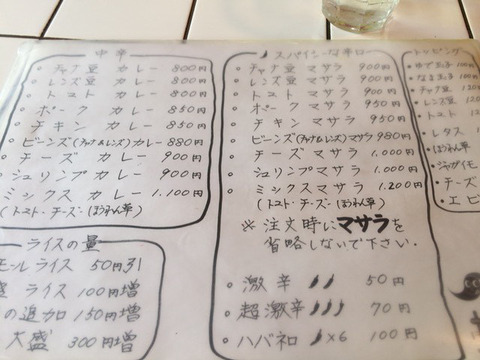 中辛
チャナ豆 カレー 800円
レンズ豆 カレー 800円
トマト カレー 800円
ポーク カレー 850円
チキン カレー 850円
ビーンズ(チャナ&レンズ)カレー 880円
チーズ カレー 900円
シュリンプ カレー 900円
ミックス カレー 1.100円
(トマト・チーズ・ほうれん草)
ライスの量
モールライス 50円引
ライス 100円増
の追加 150円増
大盛 300円増
スパイシーな辛口
チャナ豆 マサラ 900円
レンズ豆 マサラ 900円
トマト マサラ 900円
ポーク マサラ 950円
チキン マサラ 950円
ビーンズ(チャナ&レンズ)マサラ 980円
チーズ マサラ 1.000円
シュリンプ マサラ 1.000円
ミックス マサラ 1.200円
(トマト・チーズ・ほうれん草)
※ 注文時にマサラを
省略しないで下さい.
激辛 50円
超激辛 70円
ハバネロ ×6 100円
トッピング
ゆで玉子 100
なま玉子 100
チャナ豆 120
レンズ豆 120
トマト 12
レタス
ほうれん草
ジャガイモ
チーズ
エビ